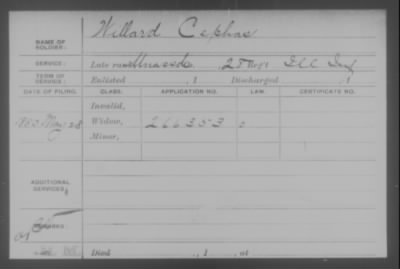 NAME OF SOLDIER: Willard Cephas
SERVICE: Late rank Unassd., 28 Reg't Ill Inf
TERM OF SERVICE: Enlisted , 1 Discharged , 1
DATE OF FILING. CLASS. APPLICATION NO. LAW. CERTIFICATE NO.
Invalid,
1880 May 28 Widow, 266353
Minor,
ADDITIONAL SERVICES:
REMARKS:
Died , 1 , at